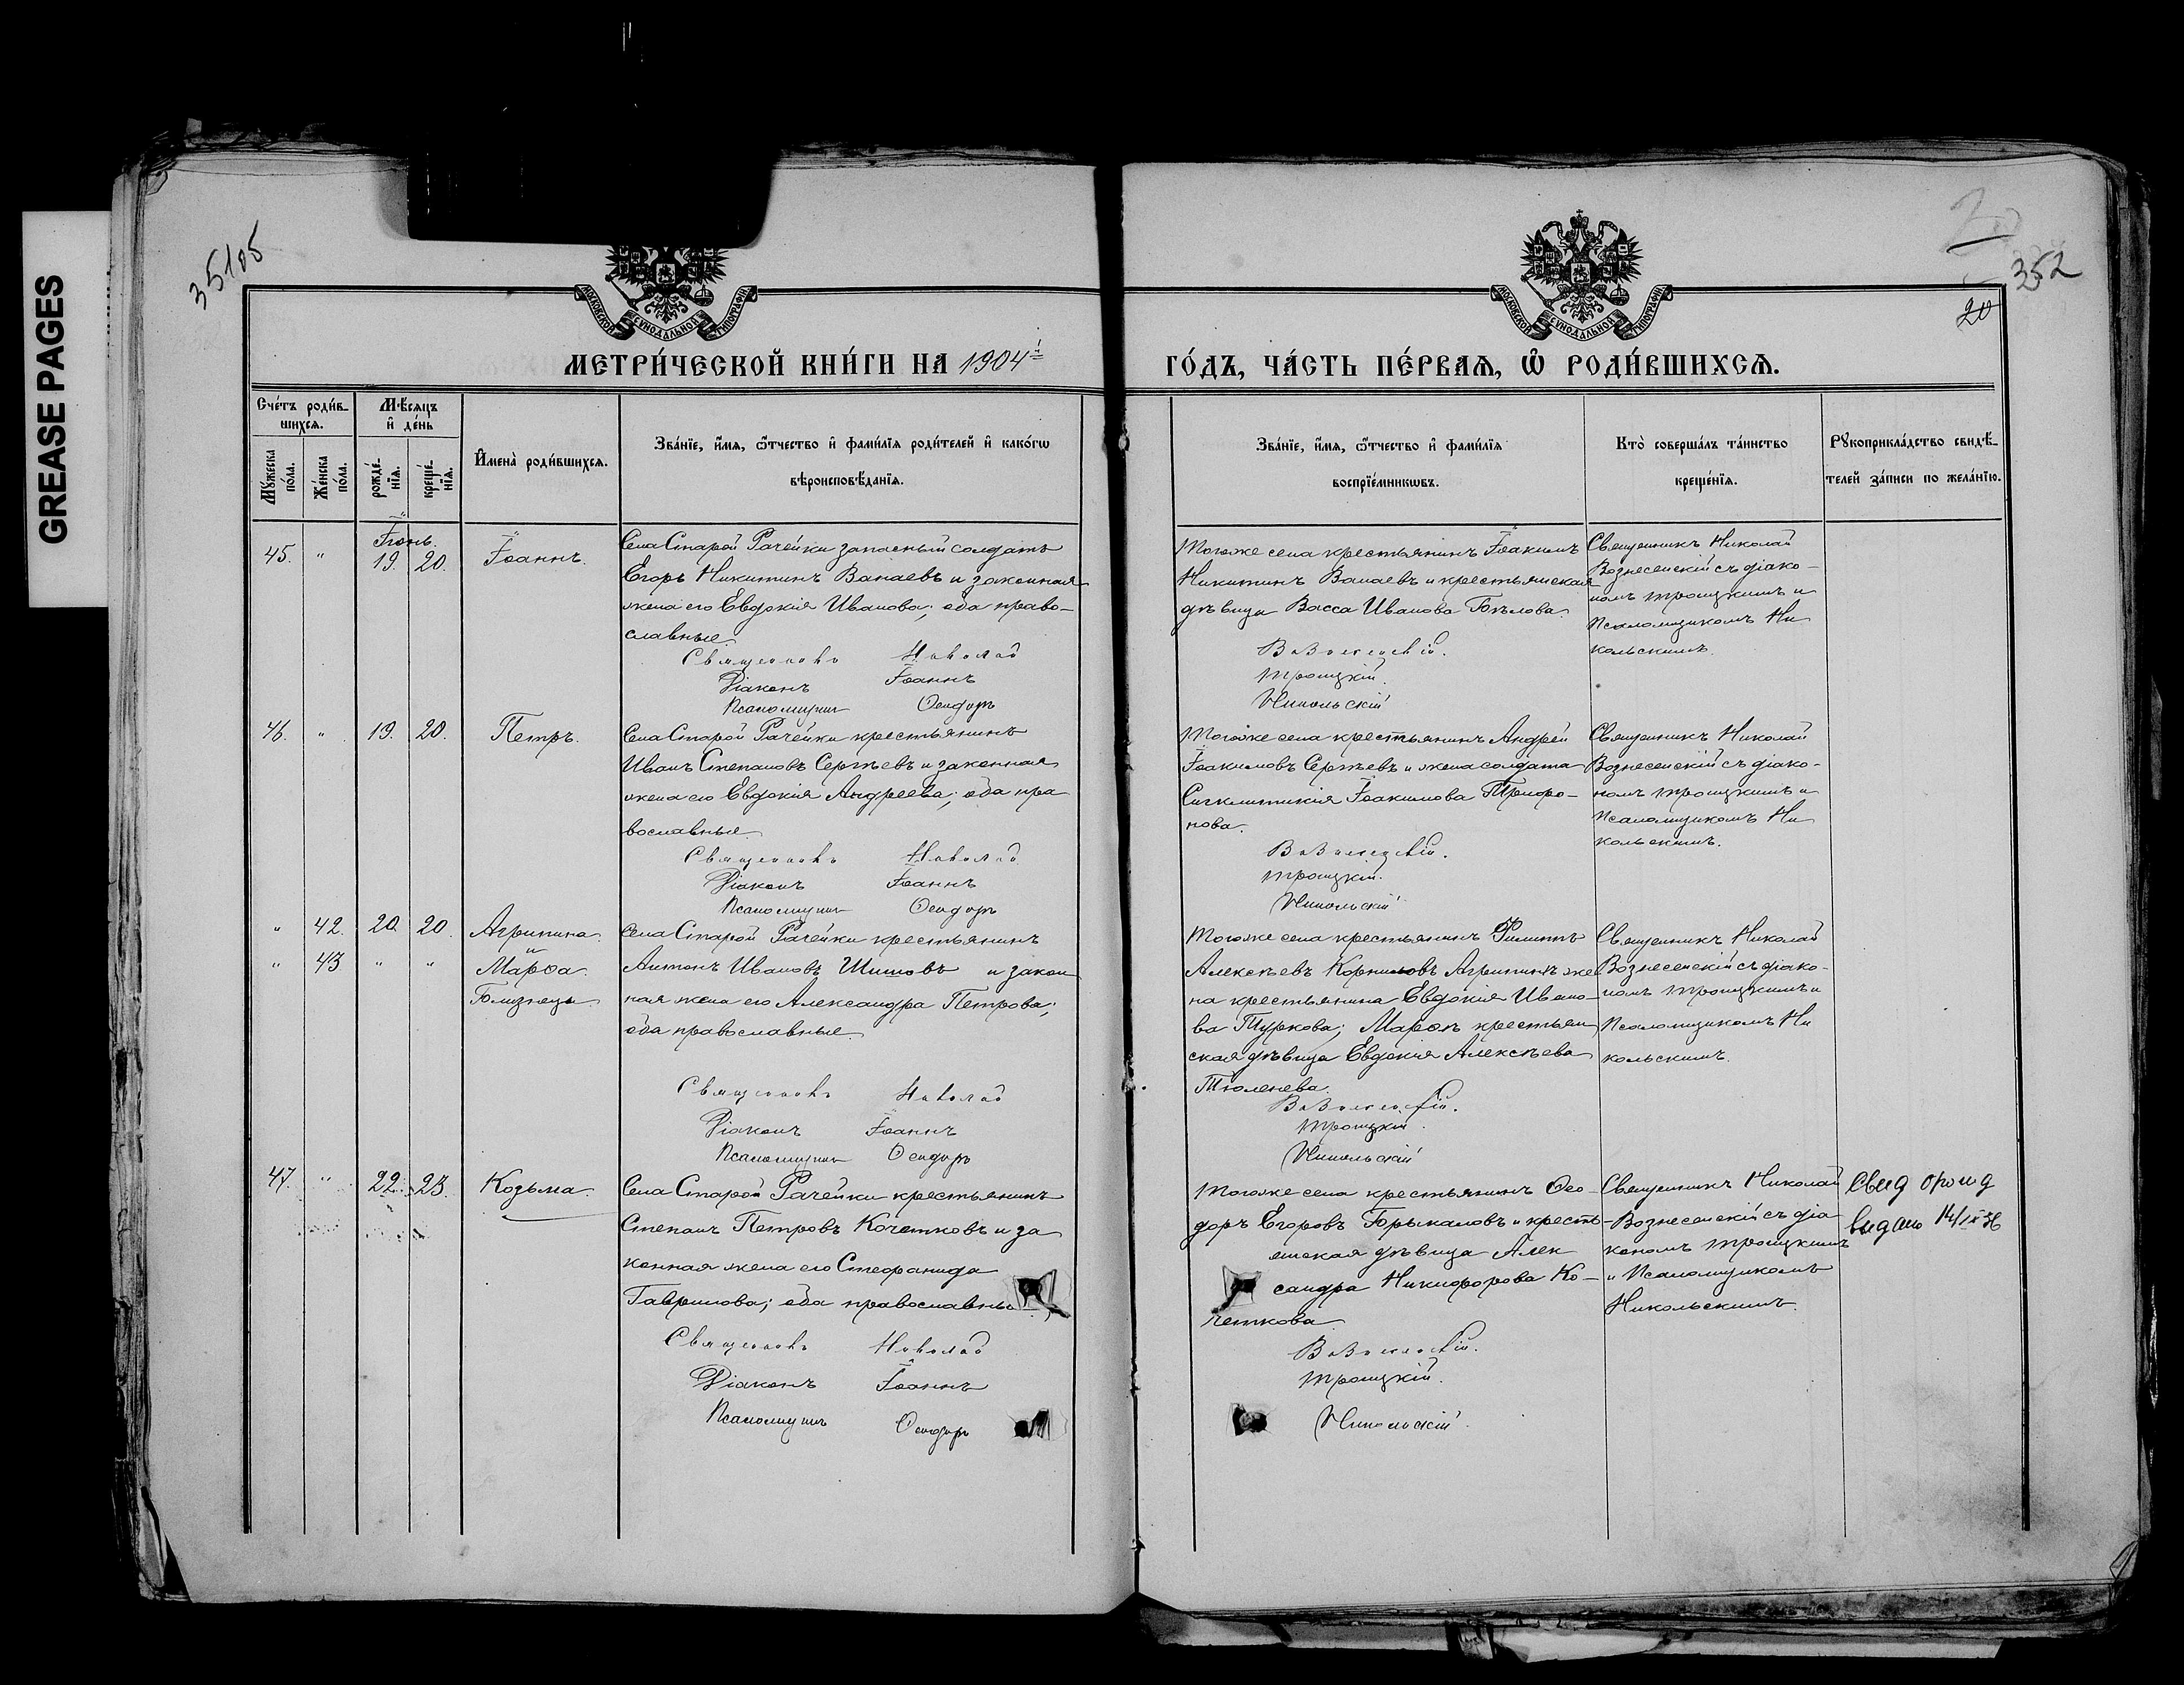 GREASE PAGES
35105
352
20
МОСКОВСКОЙ СУНОДАЛЬНОЙ ТИПОГРАФІИ
МОСКОВСКОЙ СУНОДАЛЬНОЙ ТИПОГРАФІИ
МЕТРИ́ЧЕСКОЙ КНИ́ГИ НА 1904й ГО́ДЪ, ЧА́СТЬ ПЕ́РВАЯ, Ѡ РОДИ́ВШИХСѦ.
Сче́тъ роди́в-
шихсѧ.
Му́жеска по́ла.
Же́нска по́ла.
Мѣ́сѧцъ и де́нь
рожде́-нїѧ.
креще́-нїѧ.
И҆мена̀ роди́вшихсѧ.
Зва́нїе, и҆́мѧ, ѻ҆́тчество и҆ фами́лїѧ роди́телей и҆ како́гѡ
вѣроисповѣ́данїѧ.
Зва́нїе, и҆́мѧ, ѻ҆́тчество и҆ фами́лїѧ
воспрїе́мникѡвъ.
Кто̀ соверша́лъ та́инство
креще́нїѧ.
Рꙋкоприкла́дство свидѣ́-
телей за́писи по жела́нїю.
Іюнь.
45. " 19. 20. Іоаннъ.
Села Старой Рачейки запасный солдатъ
Егоръ Никитинъ Ванаевъ и законная
жена его Евдокія Иванова; оба право-
славные.
Священникъ Николай
Діаконъ Іоаннъ
Псаломщикъ Ѳеодоръ
Тогоже села крестьянинъ Іоакимъ
Никитинъ Ванаевъ и крестьянская
дѣвица Васса Иванова Гоѣлова.
Вознесенскій.
Троицкій.
Никольскій
Священникъ Николай
Вознесенскій съ діако-
номъ Троицкимъ и
Псаломщикомъ Ни
кольскимъ.
46. " 19. 20. Петръ.
Села Старой Рачейки крестьянинъ
Иванъ Степановъ Сергѣевъ и законная
жена его Евдокія Андреева; оба пра
вославные.
Священникъ Николай
Діаконъ Іоаннъ
Псаломщикъ Ѳеодоръ
Тогоже села крестьянинъ Андрей
Іоакимовъ Сергѣевъ и жена солдата
Сигклитикія Іоакимова Трифо-
нова.
Вознесенскій.
Троицкій.
Никольскій
Священникъ Николай
Вознесенскій съ діако-
номъ Троицкимъ и
Псаломщикомъ Ни
кольскимъ.
" 42. 20. 20. Агрипина
и
" 43 " " Марѳа.
Близнецы
Села Старой Рачейки крестьянинъ
Антонъ Ивановъ Шишовъ и закон
ная жена его Александра Петрова;
оба православные.
Священникъ Николай
Діаконъ Іоаннъ
Псаломщикъ Ѳеодоръ
Тогоже села крестьянинъ Филиппъ
Алексѣевъ Корниловъ Агрипинѣ же
на крестьянина Евдокія Ивано-
ва Туркова; Марѳѣ крестьян
ская дѣвица Евдокія Алексѣева
Тюленева.
Вознесенскій.
Троицкій.
Никольскій
Священникъ Николай
Вознесенскій съ діако-
номъ Троицкимъ и
Псаломщикомъ Ни
кольскимъ.
47. " 22. 23. Козьма.
Села Старой Рачейки крестьянинъ
Степанъ Петровъ Кочетковъ и за
конная жена его Стефанида
Гаврилова; оба православные
Священникъ Николай
Діаконъ Іоаннъ
Псаломщикъ Ѳеодоръ
Тогоже села крестьянинъ Ѳео-
доръ Егоровъ Горыкаловъ и кресть-
янская дѣвица Алек
сандра Никифорова Ко-
четкова
Вознесенскій.
Троицкій.
Никольскій
Священникъ Николай
Вознесенскій съ діа
кономъ Троицкимъ
и Псаломщикомъ
Никольскимъ.
Свид
видано 14/IX 36